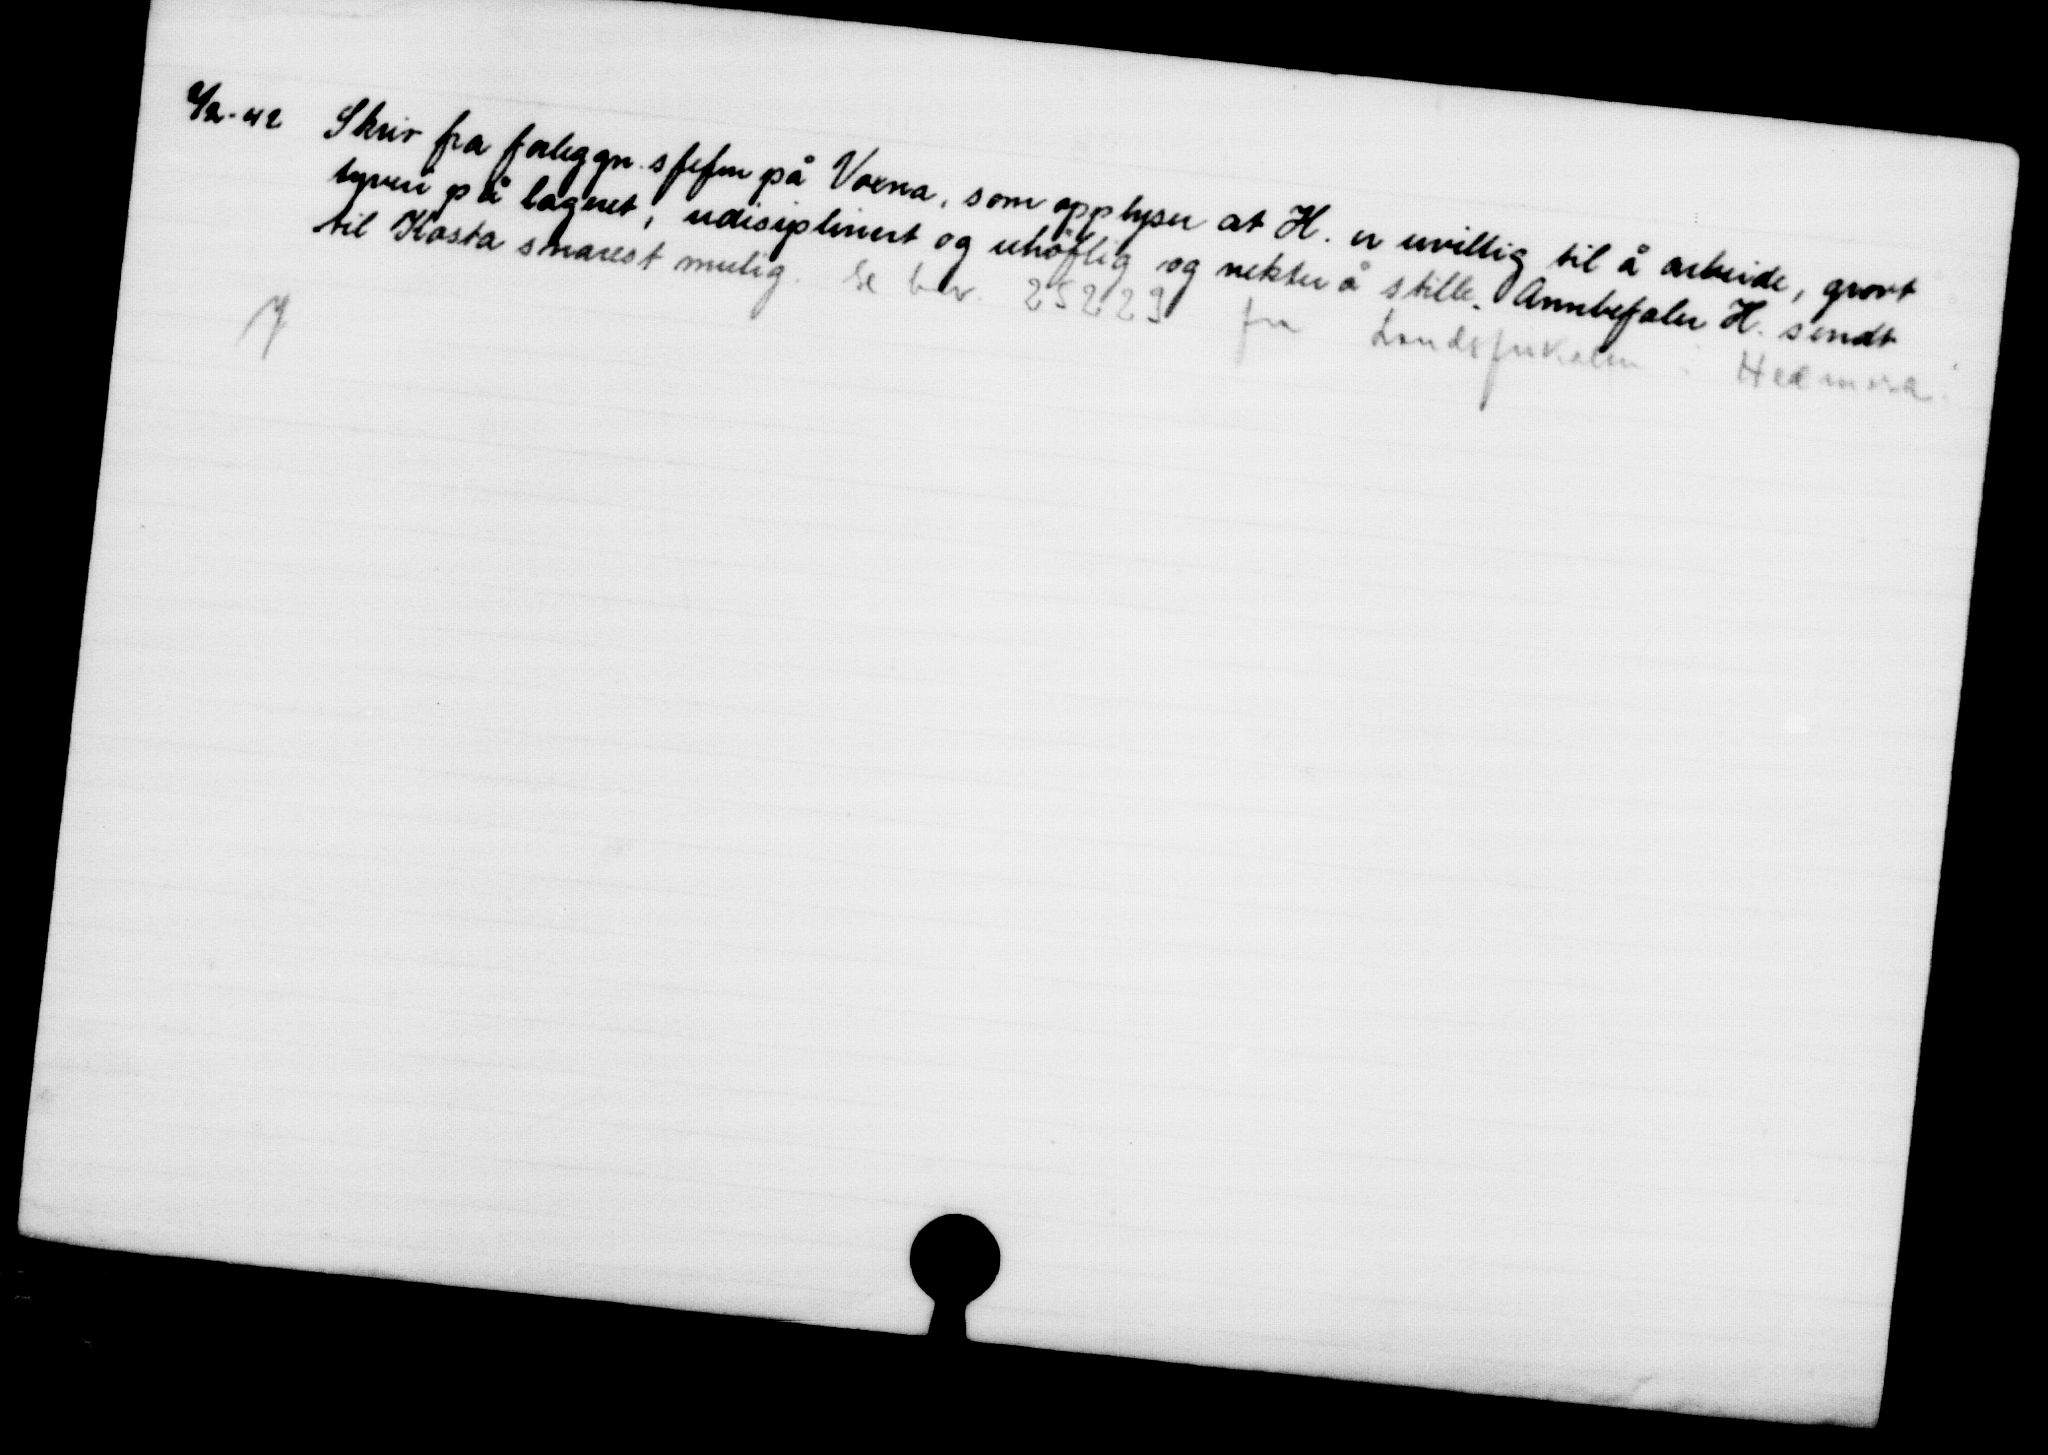 4/2-42 Skriv fra forleggn.sjefen på Voxna, som opplyser at H. er uvillig til å arbeide, grovt
tyveri på lagret, udisiplinert og uhøflig og nekter å stille. Annbefaler H. sendt
til Kosta snarest mulig. Se brev. 25229 fra Landsfiskalen i Hedemora.